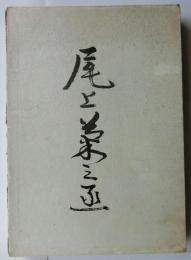 尾上菊之丞